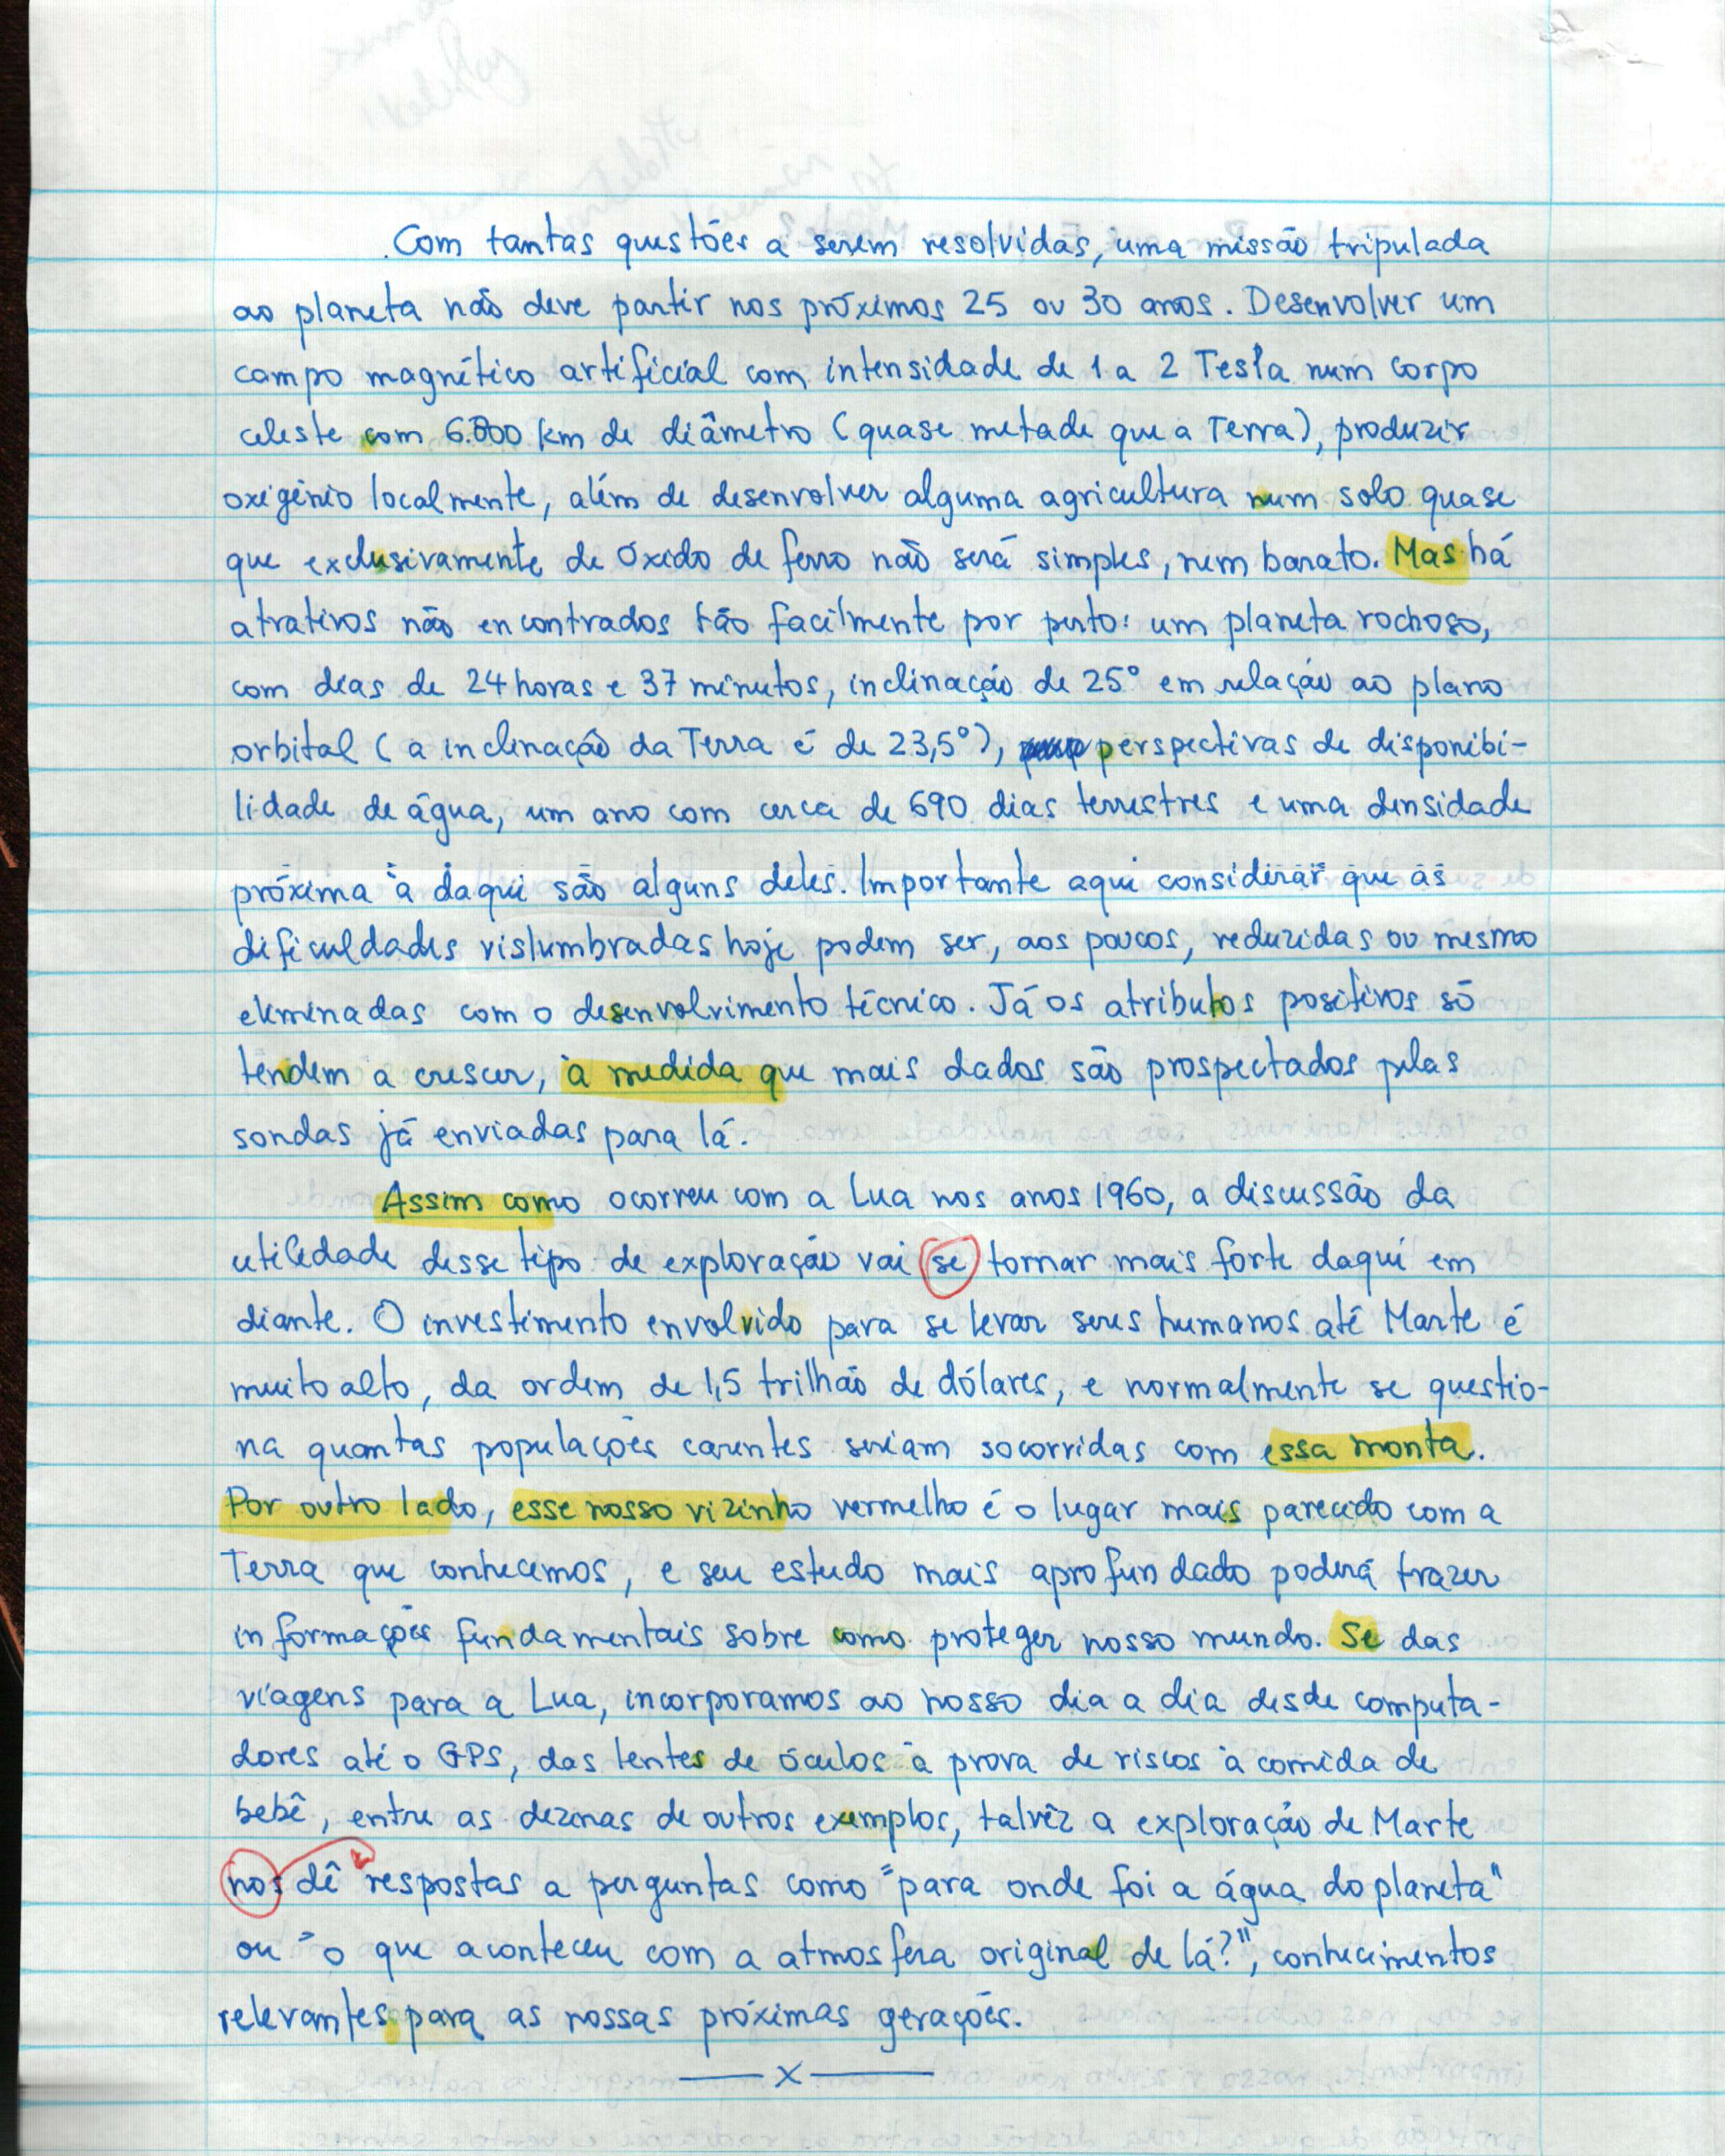 Com tantas questões a serem resolvidas, uma missão tripulada
ao planeta não deve partir nos próximos 25 ou 30 anos. Desenvolver um
campo magnético artificial com intensidade de 1 a 2 Tesla num corpo
celeste com 6.800 km de diâmetro (quase metade que a Terra), produzir
oxigênio localmente, além de desenvolver alguma agricultura num solo quase
que exclusivamente de óxido de ferro não será simples, nem barato. Mas há
atrativos não encontrados tão facilmente por perto: um planeta rochoso,
com dias de 24 horas e 37 minutos, inclinação de 25° em relação ao plano
orbital (a inclinação da Terra é de 23,5°), perspectivas de disponibi-
lidade de água, um ano com cerca de 690 dias terrestres e uma densidade
próxima à daqui são alguns deles. Importante aqui considerar que as
dificuldades vislumbradas hoje podem ser, aos poucos, reduzidas ou mesmo
eliminadas com o desenvolvimento técnico. Já os atributos positivos só
tendem a crescer, à medida que mais dados são prospectados pelas
sondas já enviadas para lá.
Assim como ocorreu com a Lua nos anos 1960, a discussão da
utilidade desse tipo de exploração vai se tornar mais forte daqui em
diante. O investimento envolvido para se levar seres humanos até Marte é
muito alto, da ordem de 1,5 trilhão de dólares, e normalmente se questio-
na quantas populações carentes seriam socorridas com essa monta.
Por outro lado, esse nosso vizinho vermelho é o lugar mais parecido com a
Terra que conhecemos, e seu estudo mais aprofundado poderá trazer
informações fundamentais sobre como proteger nosso mundo. Se das
viagens para a Lua, incorporamos ao nosso dia a dia desde computa-
dores até o GPS, das lentes de óculos à prova de riscos à comida de
bebê, entre as dezenas de outros exemplos, talvêz a exploração de Marte
nos dê respostas a perguntas como "para onde foi a água do planeta"
ou "o que aconteceu com a atmosfera original de lá?", conhecimentos
relevantes para as nossas próximas gerações.
—— x ——